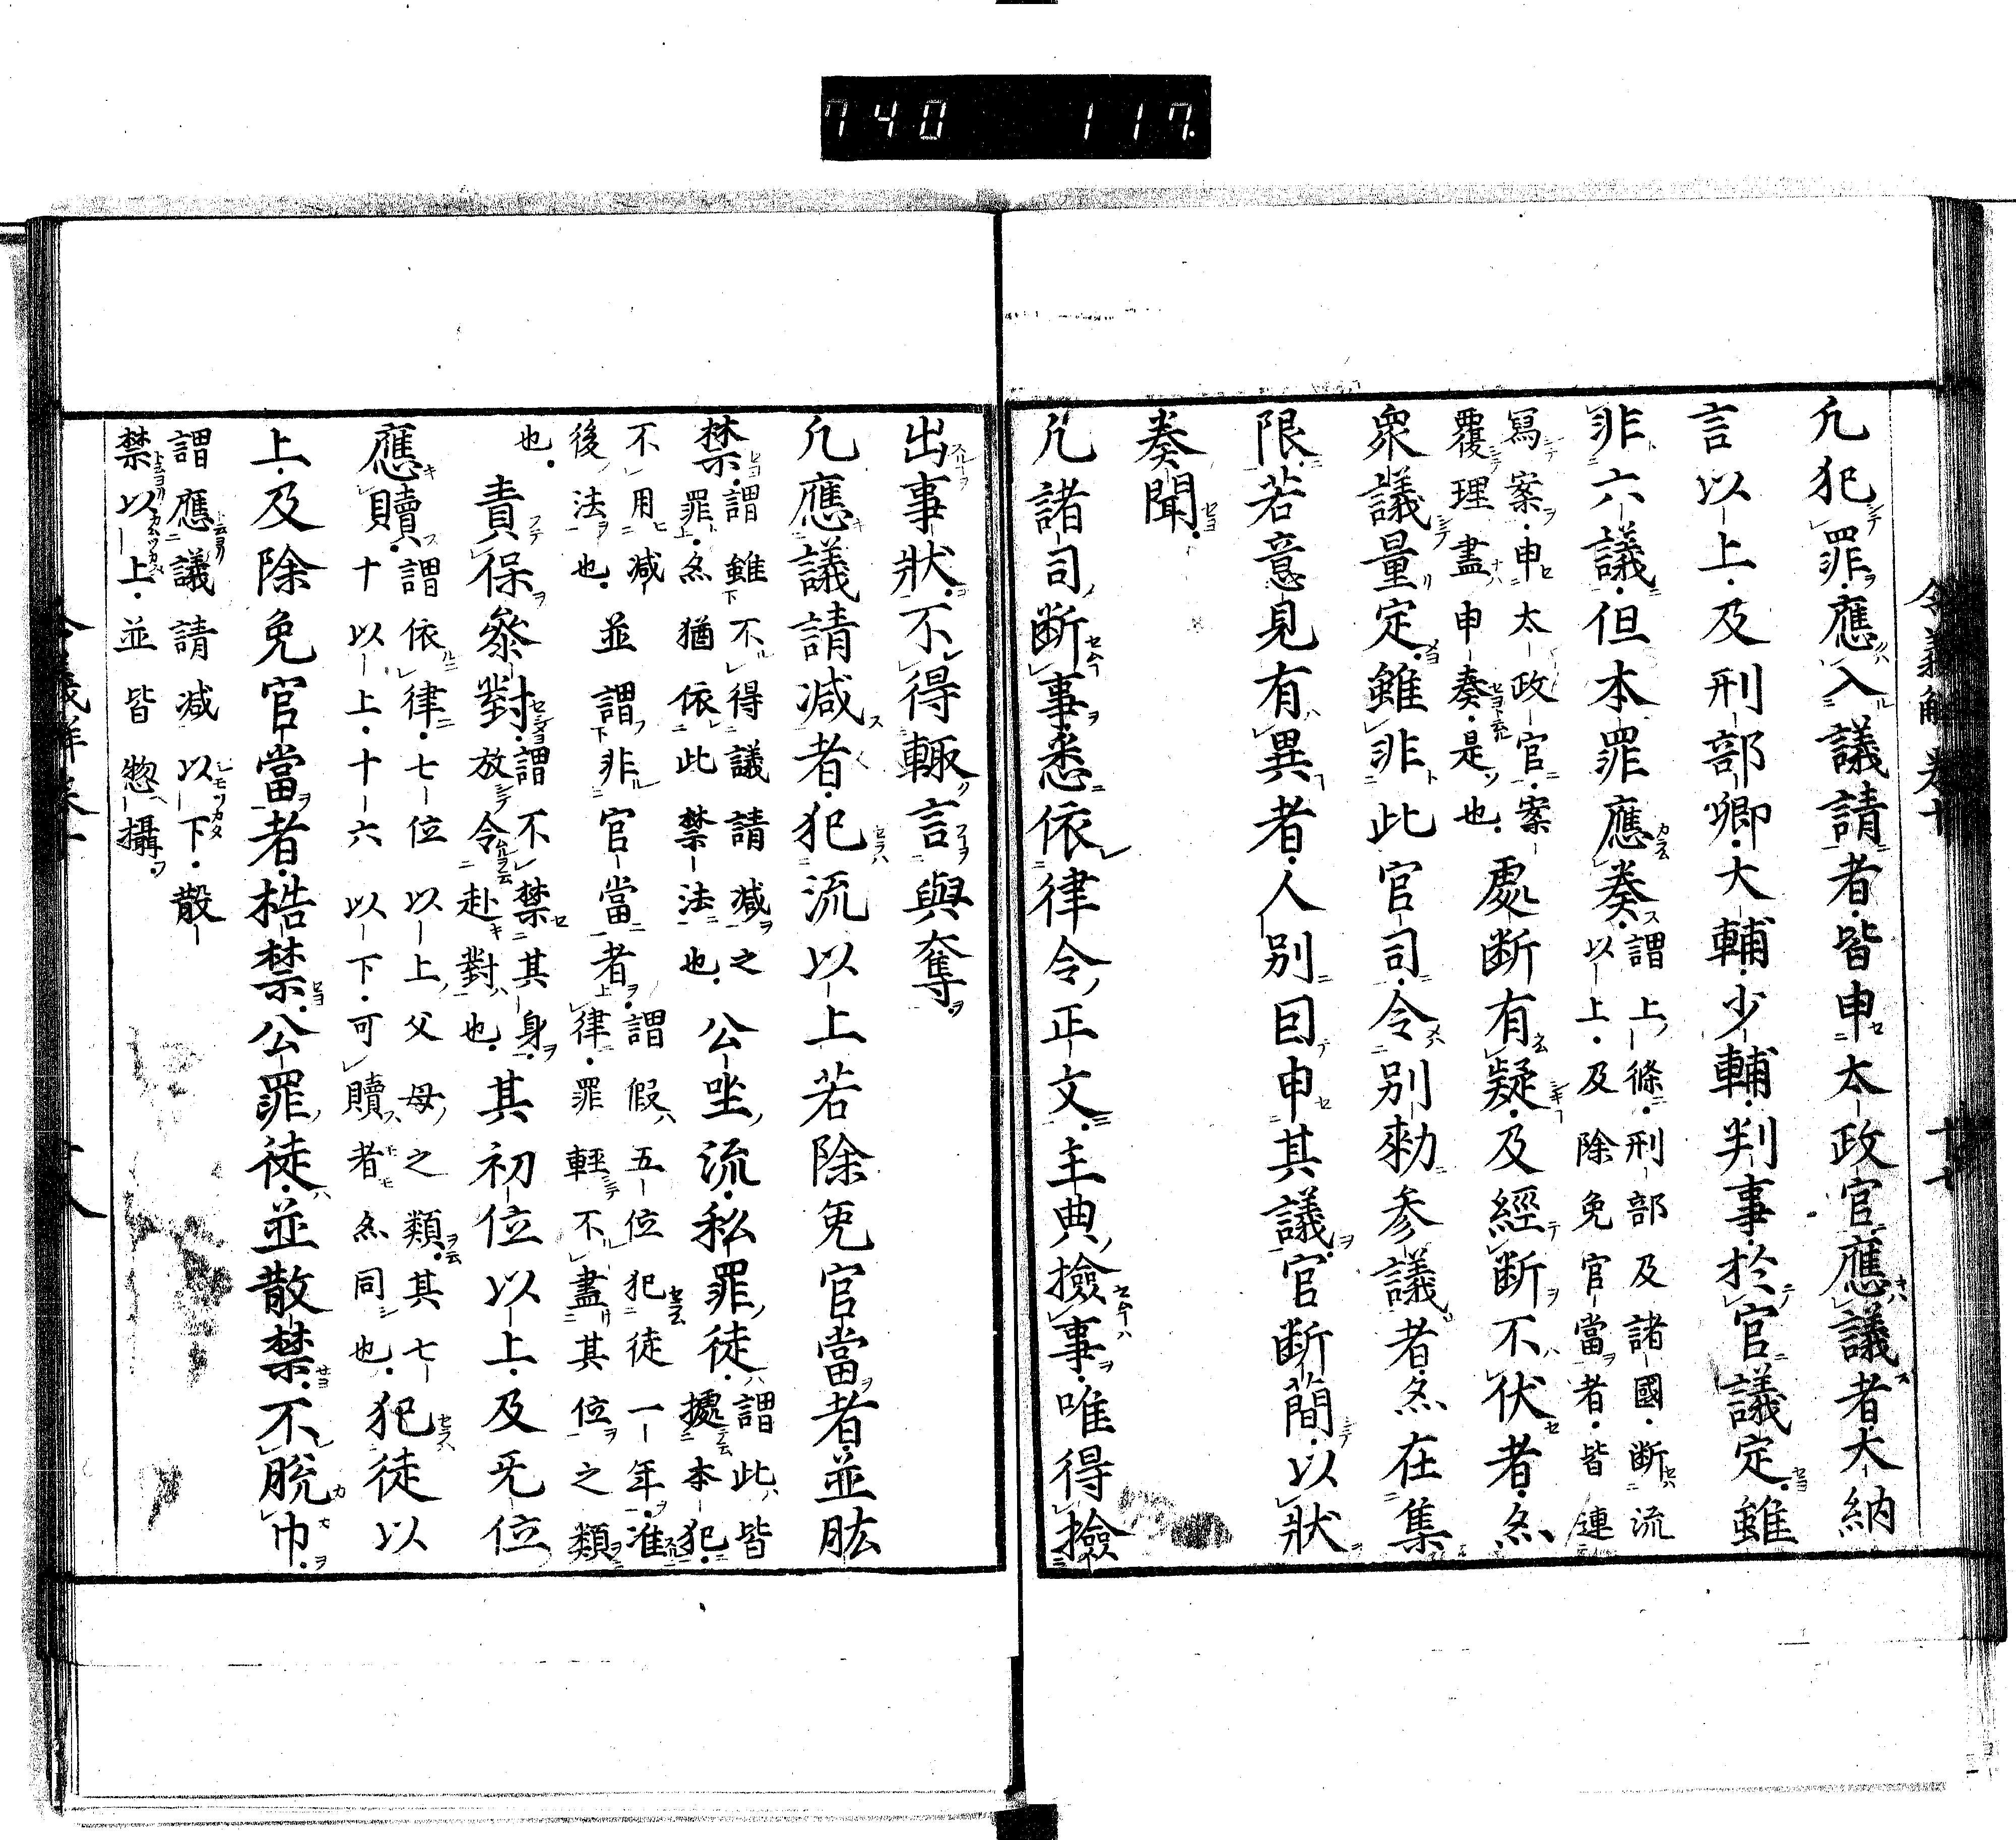 740 117
凢犯罪應入議請者皆申太政官應議者大納
言以上及刑部卿大輔少輔判事於官議定雖
非六議但本罪應奏謂上條刑部及諸國断流
以上及除免官當者皆連
寫案申太政官案
覆理盡申奏是也處断有疑及經断不伏者亦
衆議量定雖非此官司令別勅参議者亦在集
限若意見有異者人別囙申其議官断簡以狀
奏聞
凢諸司断事悉依律令正文主典撿事唯得撿
出事狀不得輙言與奪
凢應議請减者犯流以上若除免官當者並肱
禁謂雖不得議請减之
罪亦猶依此禁法也公坐流私罪徒謂此皆
據本犯
不用减
後法也並謂非官當者謂假五位犯徒一年准
律罪輕不盡其位之類
也
責保參對謂不禁其身
放令赴對也其初位以上及无位
應贖謂依律七位以上父母之類其七
十以上十六以下可贖者亦同也犯徒以
上及除免官當者梏禁公罪徒並散禁不脫巾
謂應議請减以下散
禁以上並皆惣攝